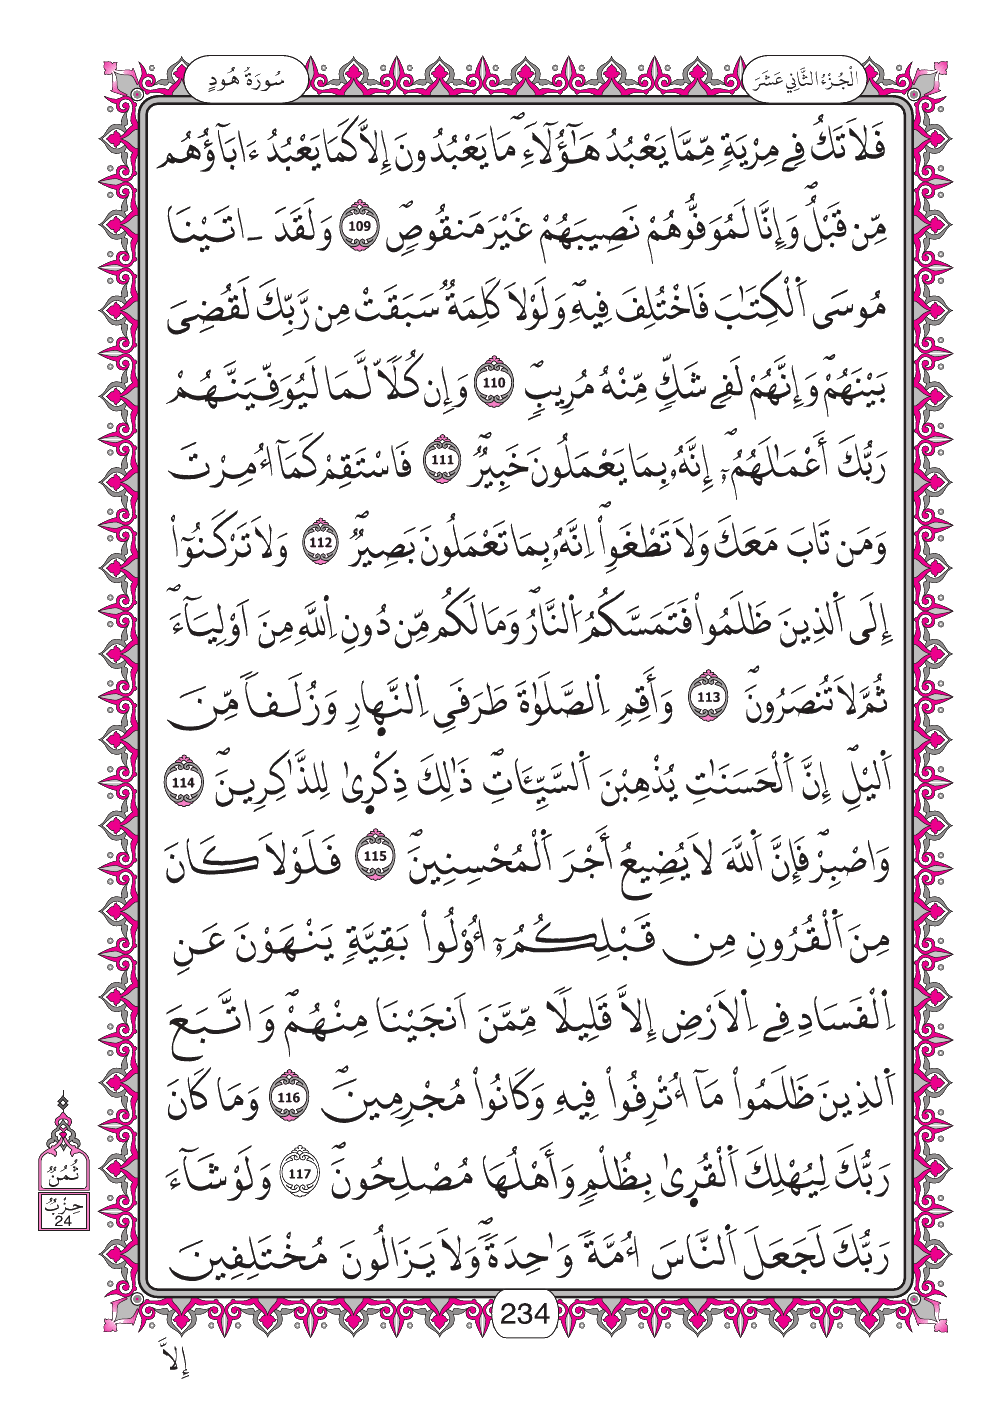 الْجُزْءُ الثَّانِي عَشَرَ
سُورَةُ هُودٍ
فَلَا تَكُ فِے مِرْيَةٍ مِّمَّا يَعْبُدُ هَٰٓؤُلَآءِ مَا يَعْبُدُونَ إِلَّا كَمَا يَعْبُدُ ءَابَآؤُهُم
مِّن قَبْلُ وَإِنَّا لَمُوَفُّوهُمْ نَصِيبَهُمْ غَيْرَ مَنقُوصٍ 109 وَلَقَدَ ـ اتَيْنَا
مُوسَى اَ۬لْكِتَٰبَ فَاخْتُلِفَ فِيهِ وَلَوْلَا كَلِمَةٌ سَبَقَتْ مِن رَّبِّكَ لَقُضِيَ
بَيْنَهُمْ وَإِنَّهُمْ لَفِے شَكٍّ مِّنْهُ مُرِيبٍ 110 وَإِن كُلًّا لَّمَا لَيُوَفِّيَنَّهُمْ
رَبُّكَ أَعْمَٰلَهُمُۥ إِنَّهُۥ بِمَا يَعْمَلُونَ خَبِيرٌ 111 فَاسْتَقِمْ كَمَآ أُمِرْتَ
وَمَن تَابَ مَعَكَ وَلَا تَطْغَوِاْ اِنَّهُۥ بِمَا تَعْمَلُونَ بَصِيرٌ 112 وَلَا تَرْكَنُوٓاْ
إِلَى اَ۬لذِينَ ظَلَمُواْ فَتَمَسَّكُمُ اُ۬لنَّارُ وَمَا لَكُم مِّن دُونِ اِ۬للَّهِ مِنَ اَوْلِيَآءَ
ثُمَّ لَا تُنصَرُونَ 113 وَأَقِمِ اِ۬لصَّلَوٰةَ طَرَفَيِ اِ۬لنَّهارِ وَزُلَفاً مِّنَ
اَ۬ليْلِ إِنَّ اَ۬لْحَسَنَٰتِ يُذْهِبْنَ اَ۬لسَّيِّـَٔاتِ ذَٰلِكَ ذِكْرٜىٰ لِلذَّٰكِرِينَ 114
وَاصْبِرْ فَإِنَّ اَ۬للَّهَ لَا يُضِيعُ أَجْرَ اَ۬لْمُحْسِنِينَ 115 فَلَوْلَا كَانَ
مِنَ اَ۬لْقُرُونِ مِن قَبْلِكُمُۥٓ أُوْلُواْ بَقِيَّةٍ يَنْهَوْنَ عَنِ
اِ۬لْفَسَادِ فِے اِ۬لَارْضِ إِلَّا قَلِيلًا مِّمَّنَ اَنجَيْنَا مِنْهُمْ وَاتَّبَعَ
اَ۬لذِينَ ظَلَمُواْ مَآ أُتْرِفُواْ فِيهِ وَكَانُواْ مُجْرِمِينَ 116 وَمَا كَانَ
رَبُّكَ لِيُهْلِكَ اَ۬لْقُرٜىٰ بِظُلْمٍ وَأَهْلُهَا مُصْلِحُونَ 117 وَلَوْ شَآءَ
رَبُّكَ لَجَعَلَ اَ۬لنَّاسَ أُمَّةً وَٰحِدَةً وَلَا يَزَالُونَ مُخْتَلِفِينَ
ثُمُنُ
حِزْبُ
24
234
إِلَّا